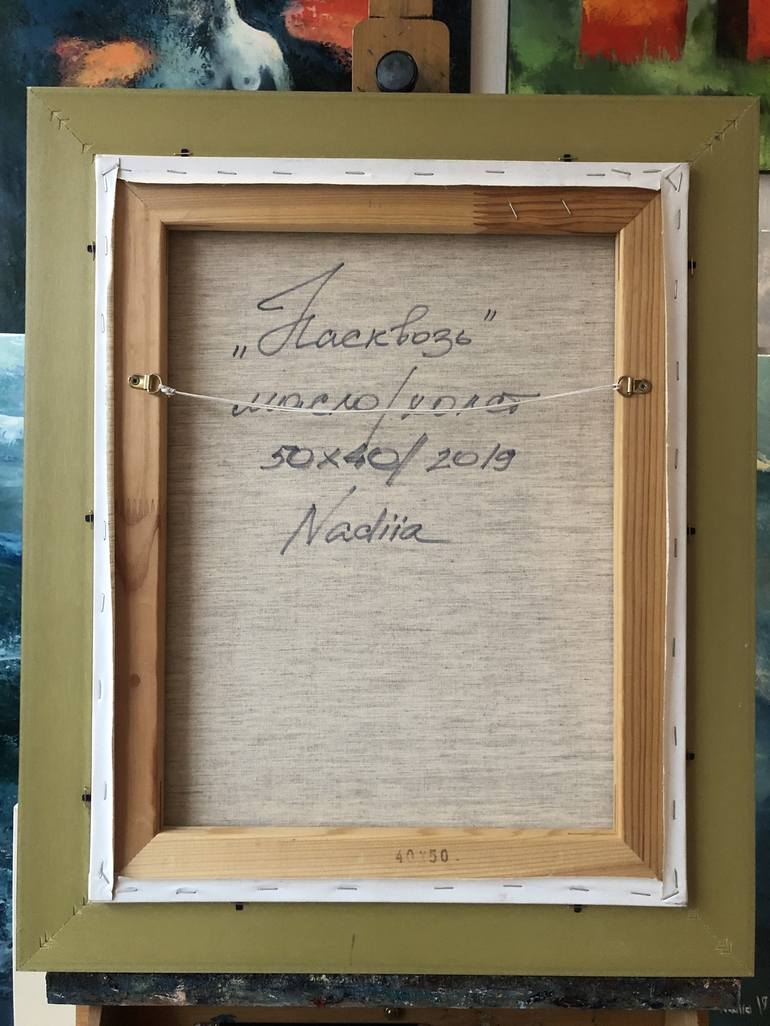 „Насквозь”
масло/холст
50x40/ 2019
Nadiia
40x50.